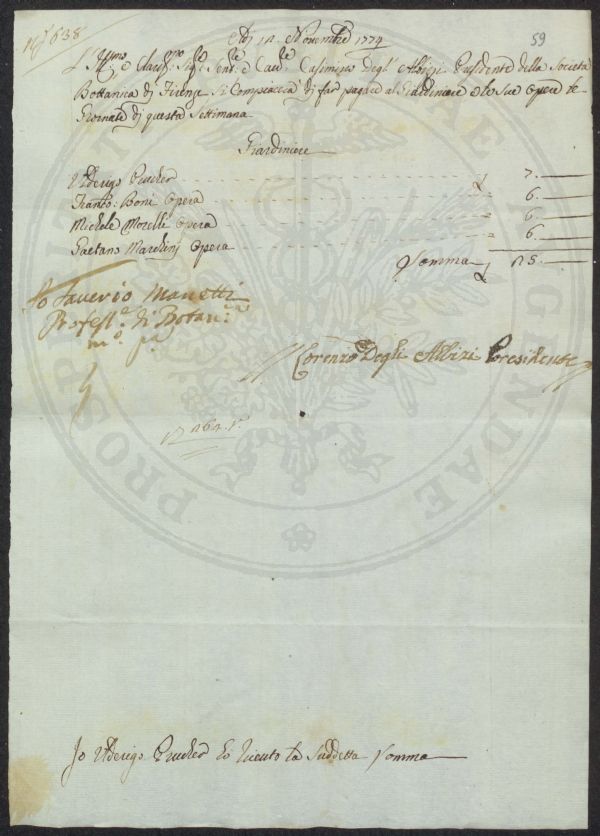 N.° 638
59
Adì 12 Novembre 1774
L'Ill.mo e Clariss.mo Sig.re Sen.re e Cav.re Casimiro Degl' Albizi Presidente della Società
Bottanica di Firenze Si Compiaccia di far pagare al Giardiniere e le Sue Opere le
Giornate di questa Settimana
Giardiniere
Ulderigo Prucker 7.
Franco: Boni Opera 6.
Michele Morelli Opera 6.
Gaetano Marchini Opera 6.
Somma 25.
Io Saverio Manetti
Profess.e di Botan.ca
m.o p.a
Lorenzo Degli Albizi Presidente
Io Ulderigo Prucker ho riceuto la Suddetta Somma
PROSPERITATI PUBLICAE AUGENDAE